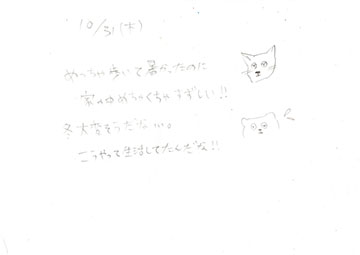 10/31(木)
めっちゃ歩いて暑かったのに
家の中めちゃくちゃすずしい!!
冬大変そうだなぁ。
こうやって生活してたんだな!!